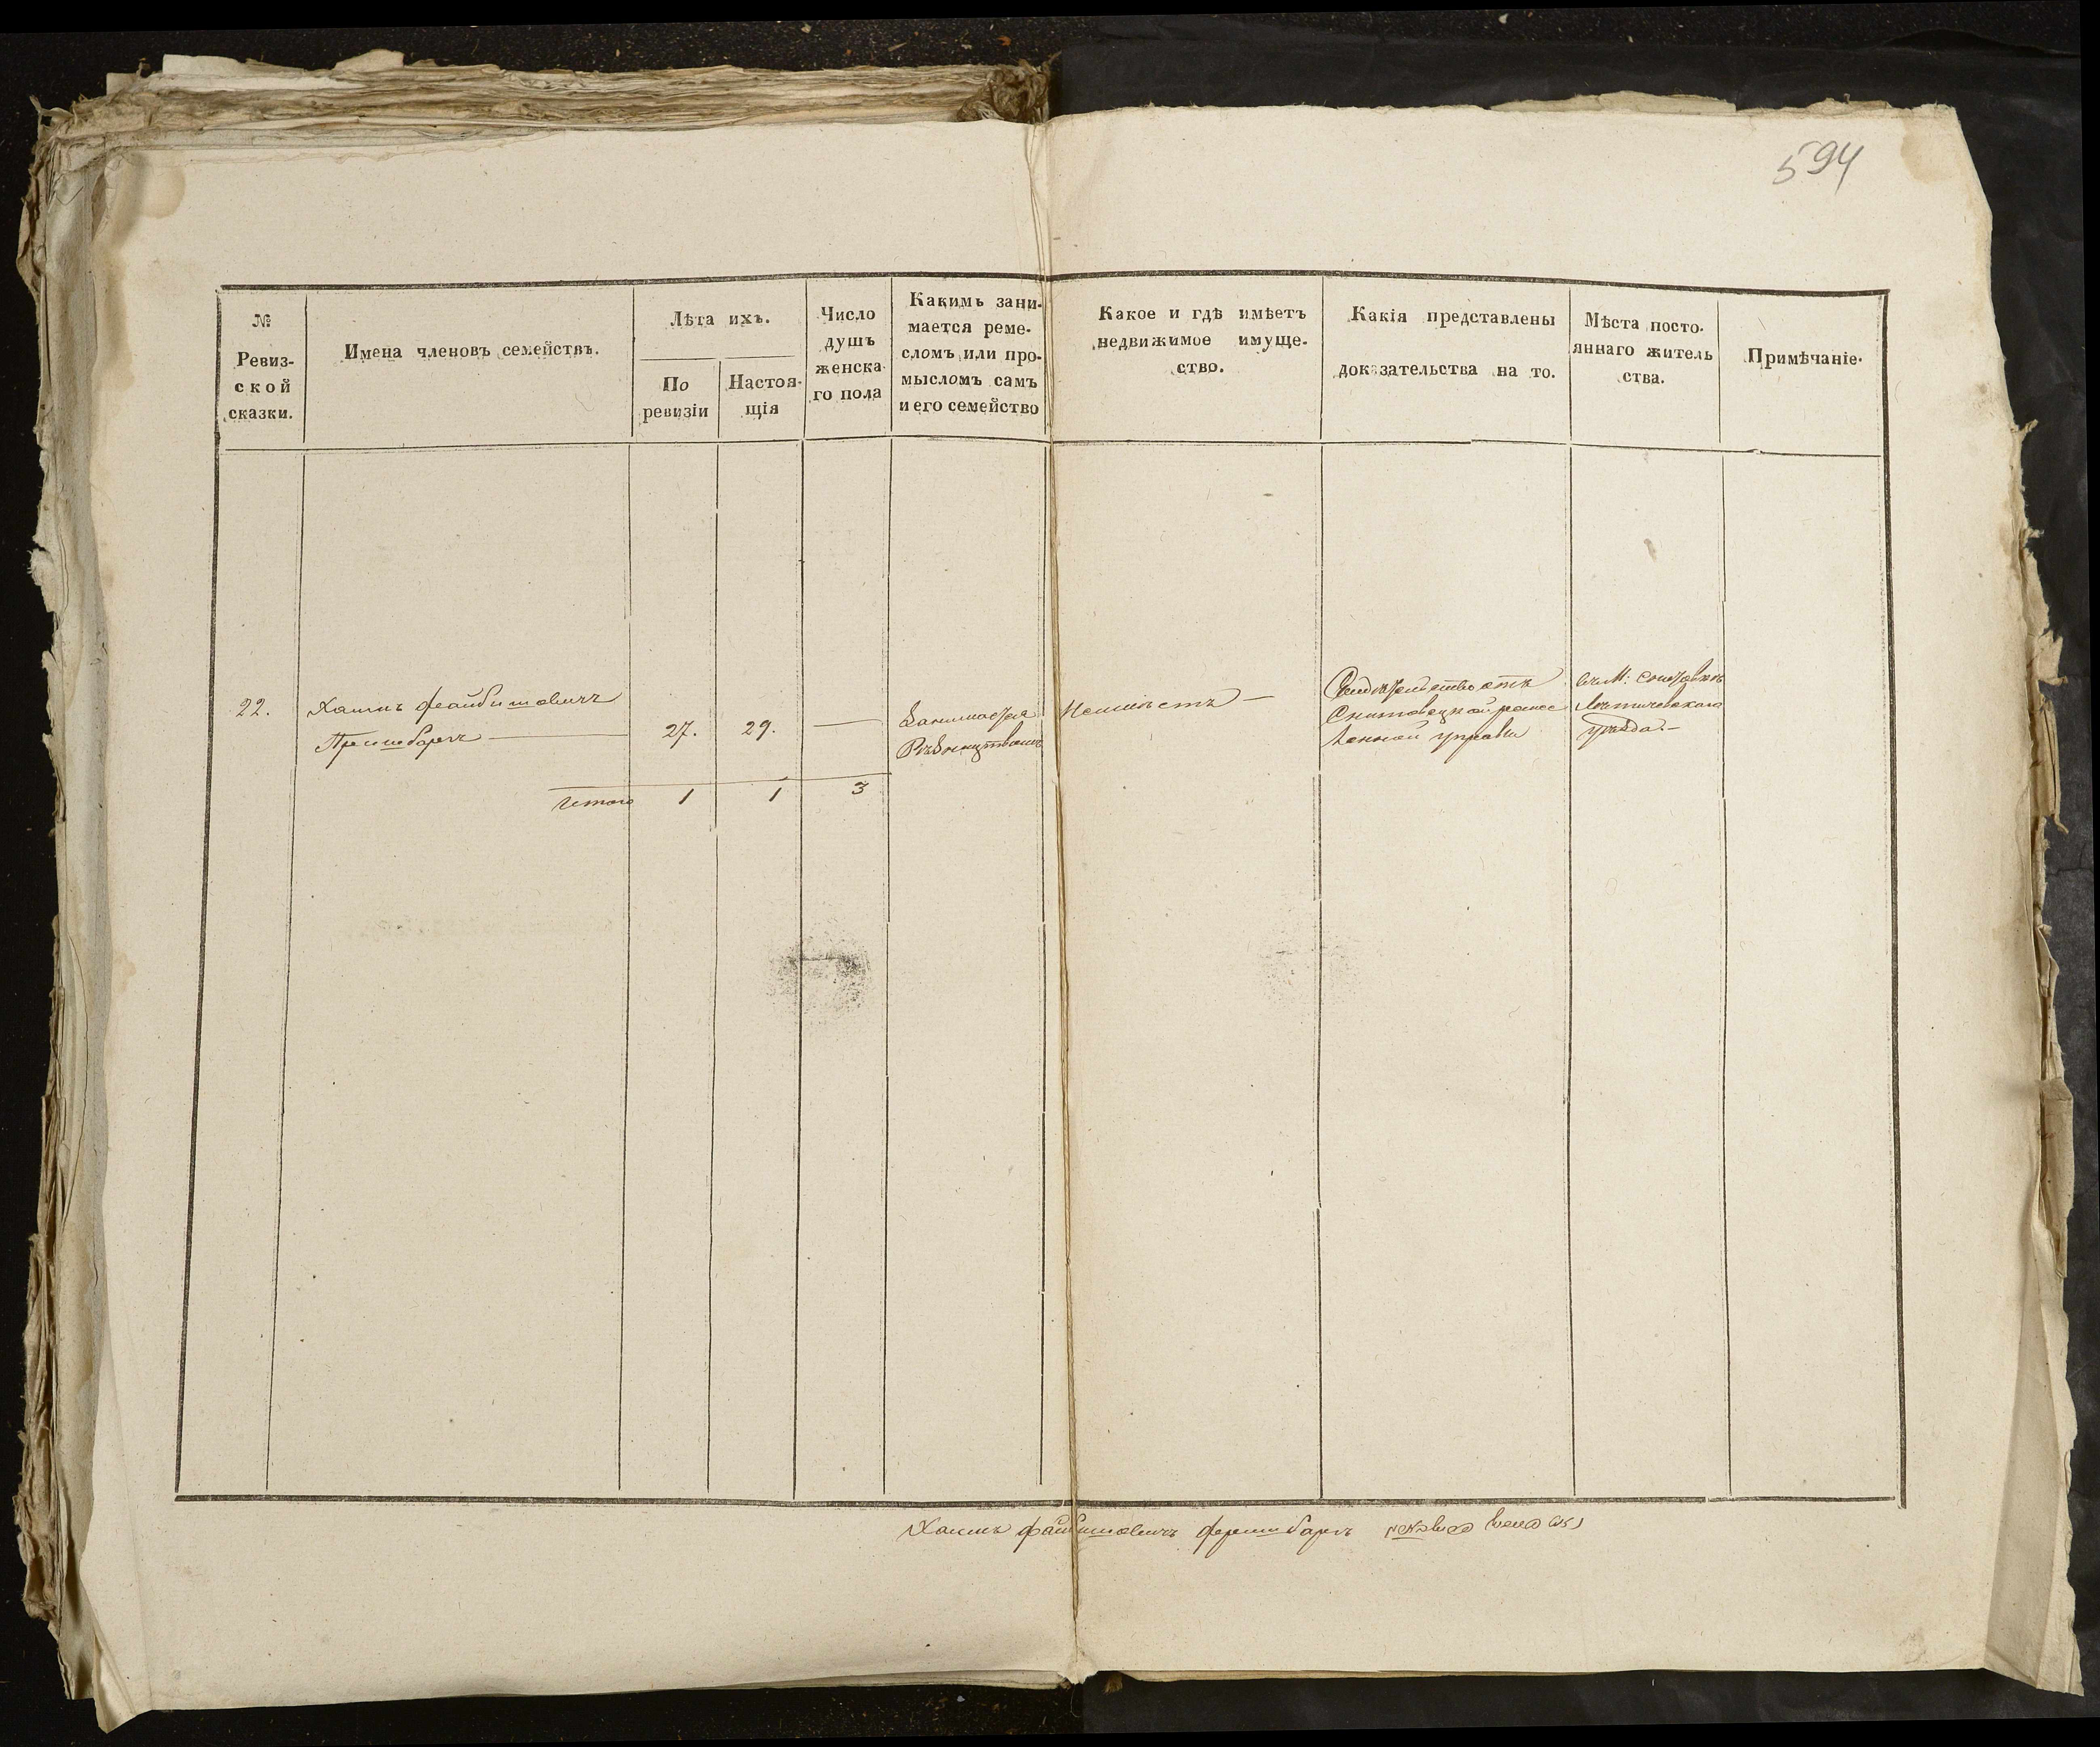 594
№
Ревиз-
ской
сказки.
Имена членовъ семействъ.
Лѣта ихъ.
По
ревизіи
Настоя-
щія
Число
душъ
женска-
го пола
Какимъ зани-
мается реме-
сломъ или про-
мысломъ самъ
и его семейство
Какое и гдѣ имѣетъ
недвижимое имуще-
ство.
Какія представлены
доказательства на то.
Мѣста посто-
яннаго житель
ства.
Примѣчаніе.
22.
Хаимъ Файбишовичъ
27.
29.
—
Занимается
Рѣзничествомъ
Неимѣетъ —
Свидѣтельство отъ
Снитовецкой ремес
ленной управы
въ М:
Летичевскаго
уѣзда. —
Итого 1 1 3
Хаимъ Файбишовичъ